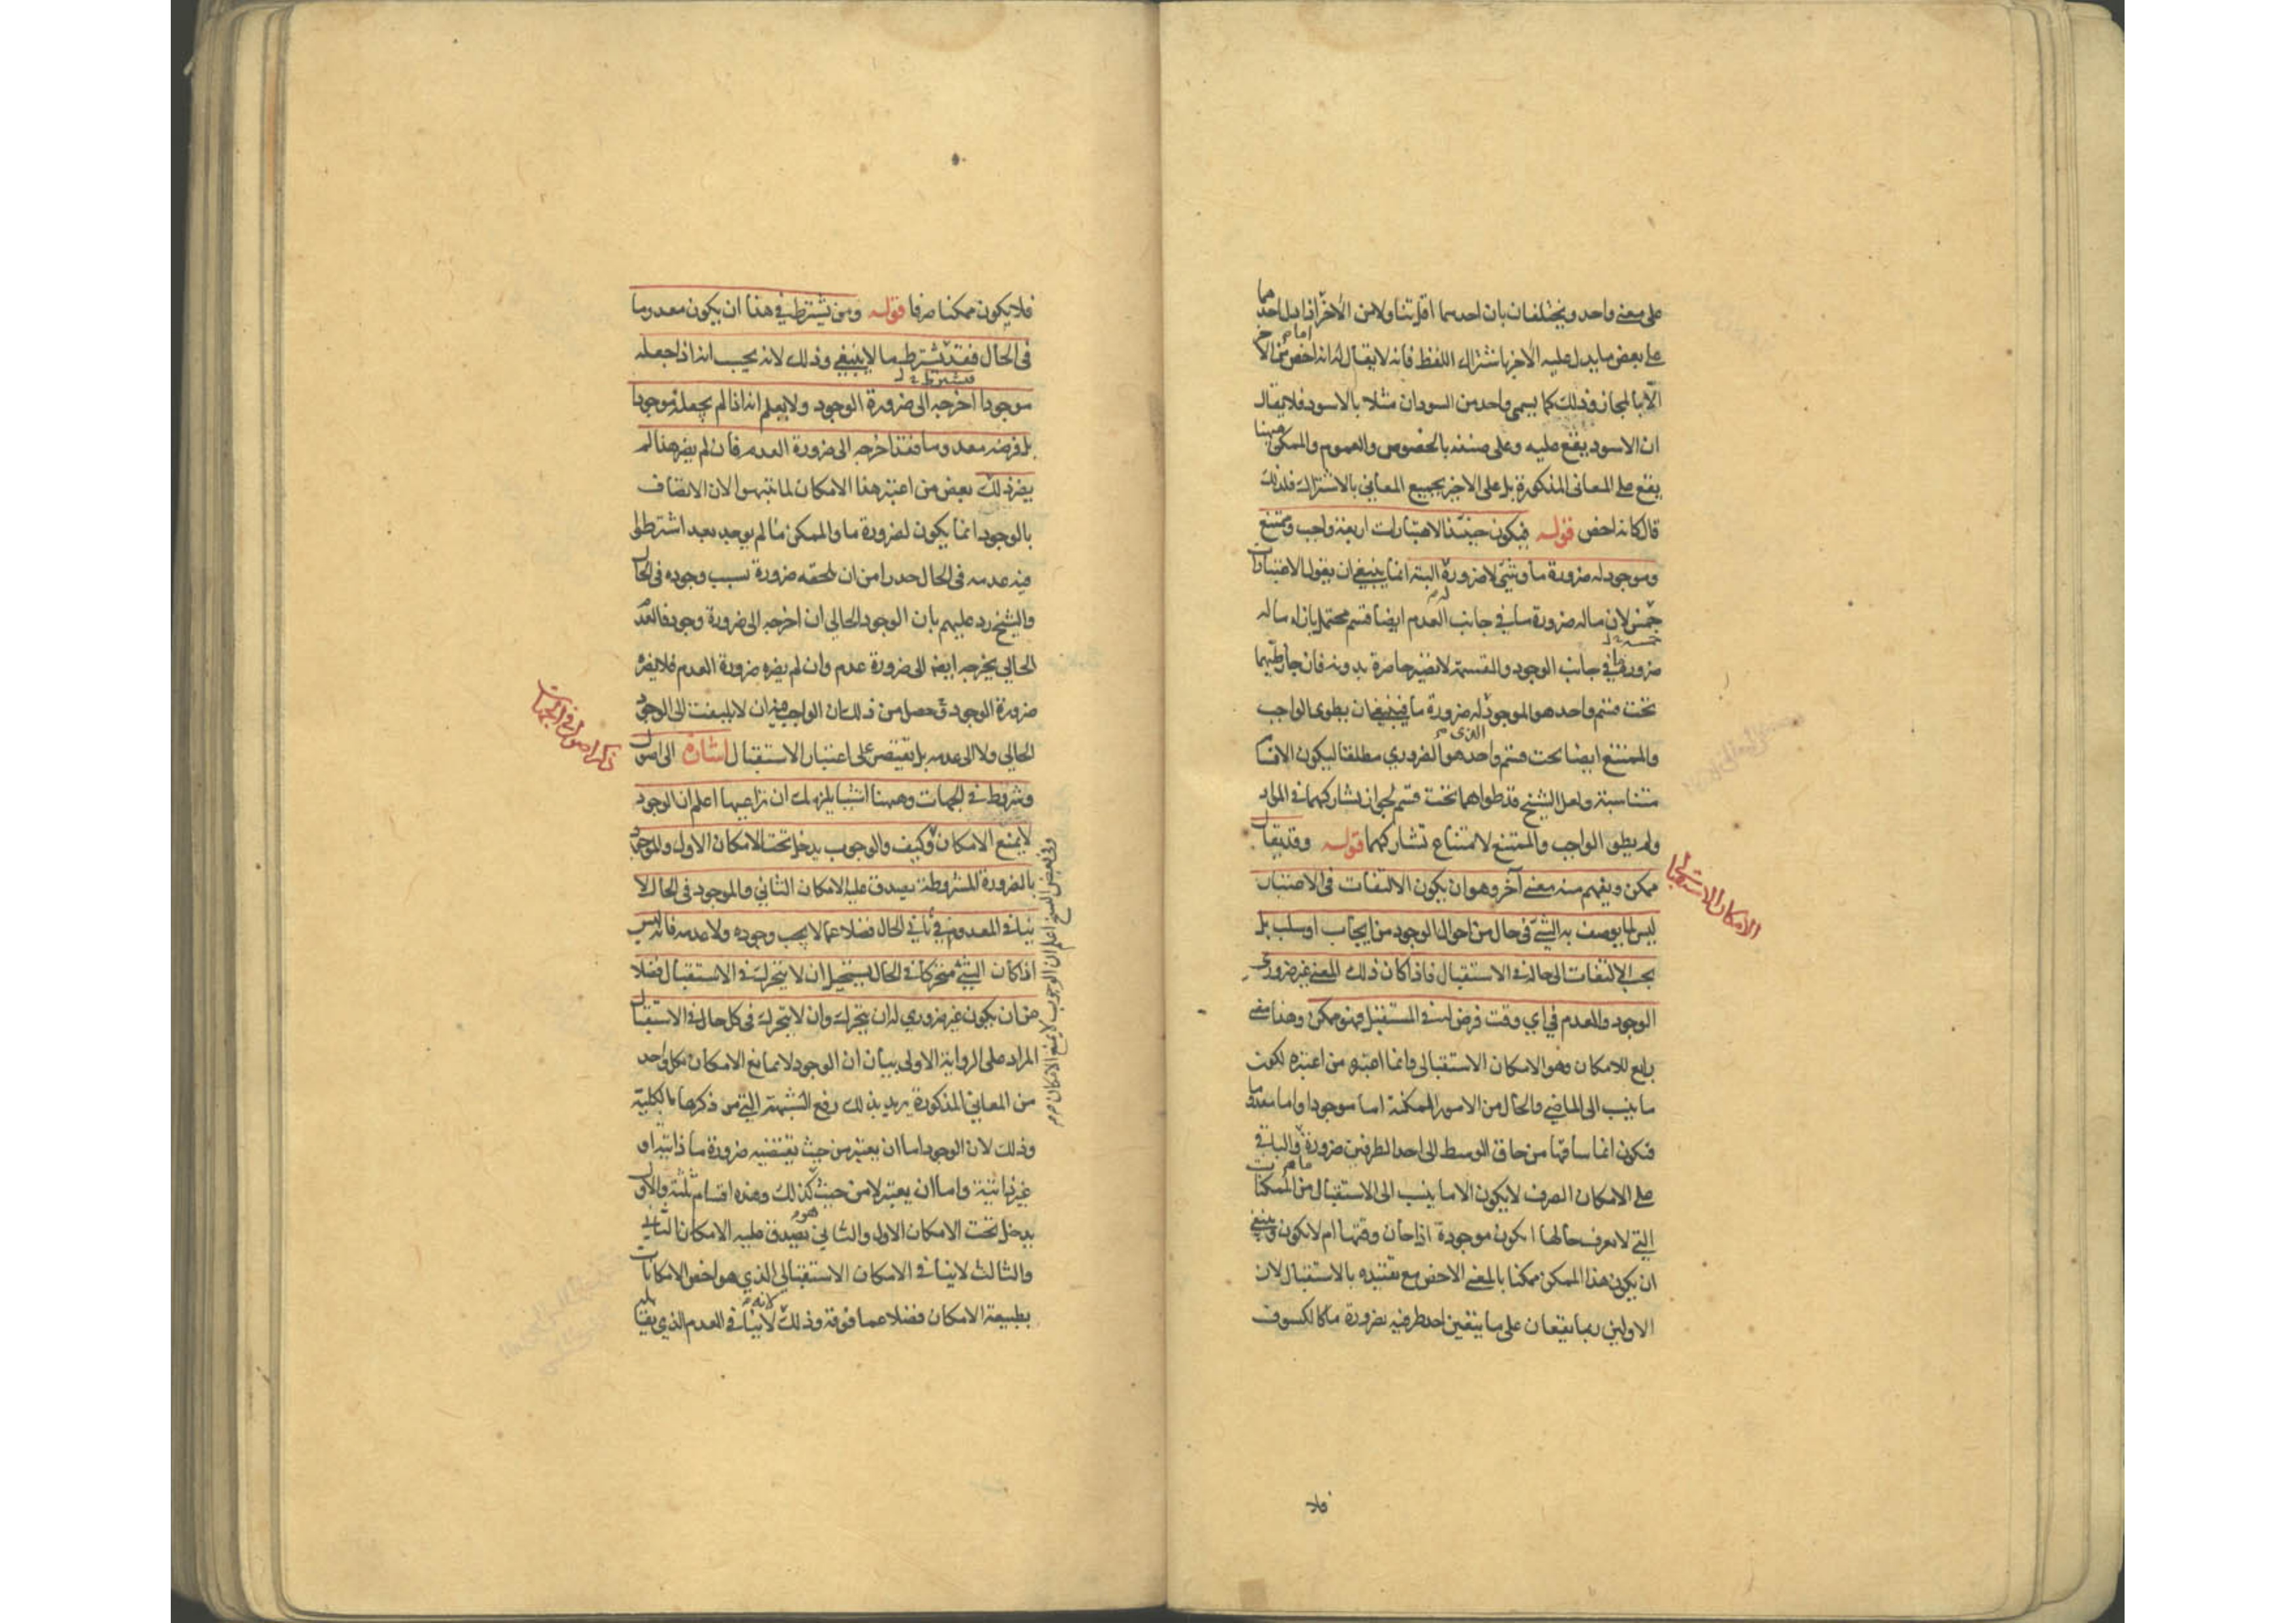 على معنى واحد ويختلفان بان احدهما اقل تناولا من الآخر اذا دل احدهما
على بعض ما يدل عليه الآخر باشتراك اللفظ فانه لا يقال له انه اخص من الآخر
الا بالمجاز وذلك كما يسمى واحد من السودان مثلا بالاسود فلا يقال
ان الاسود يقع عليه وعلى صنفه بالخصوص والعموم والممكن ههنا
يقع على المعانى المذكورة بل على الاخير بجميع المعاني بالاشتراك فلذلك
قال كانه اخص قوله فيكون حينئذ الاعتبارات اربعة واجب وممتنع
وموجود له ضرورة ما وشئ لا ضرورة له البتة انما ينبغي ان يقول الاعتبارات
خمس لان ما له ضرورة ما في جانب العدم ايضا قسم محتمل بازاء ما له
خمسة
ضرورة ما في جانب الوجود والقسمة لا تصير حاصرة بدونه فان جاز طيهما
تحت قسم واحد هو الموجود له ضرورة ما فينبغي ان يطوى الواجب
والممتنع ايضا تحت قسم واحد هو الضروري مطلقا ليكون الاقسام
الذى
متناسبة ولعل الشيخ قد طواهما تحت قسم لجواز تشاركهما في المواد
ولم يطو الواجب والممتنع لامتناع تشاركهما قوله وقد يقال
ممكن ويفهم منه معنى آخر وهو ان يكون الالتفات فى الاعتبار
ليس لما يوصف به الشئ فى حال من احوال الوجود من ايجاب او سلب بل
بحسب الالتفات الى حاله في الاستقبال فاذا كان ذلك المعنى غير ضرورى
الوجود والعدم في اي وقت فرض له في المستقبل فهو ممكن وهذا معنى
رابع للامكان وهو الامكان الاستقبالى وانما اعتبره من اعتبره لكون
ما ينسب الى الماضي والحال من الامور الممكنة اما موجودا واما معدوما
فيكون انما ساقها من حاق الوسط الى احد الطرفين ضرورة ما والباقي
على الامكان الصرف لا يكون الا ما ينسب الى الاستقبال من الممكنات
التي لا يعرف حالها ايكون موجودة اذا حان وقتها ام لا يكون وينبغي
ان يكون هذا الممكن ممكنا بالمعنى الاخص مع تقييده بالاستقبال لان
الاولين ربما يقعان على ما يتعين احد طرفيه بضرورة ما كالكسوف
فلا
الامكان الاستقبالي
فلا يكون ممكنا صرفا قوله ومن يشترط في هذا ان يكون معدوما
فى الحال فقد يشترط ما لا ينبغي وذلك لانه يحسب انه اذا جعله
فيشترط
موجودا اخرجه الى ضرورة الوجود ولا يعلم انه اذا لم يجعله موجودا
بل فرضه معدوما فقد اخرجه الى ضرورة العدم فان لم يضر هذا لم
يضر ذلك بعض من اعتبر هذا الامكان لما تنبهوا لان الاتصاف
بالوجود انما يكون لضرورة ما والممكن ما لم يوجد بعد اشترطوا
فيه عدمه فى الحال حذرا من ان تلحقه ضرورة بسبب وجوده فى الحال
والشيخ رد عليهم بان الوجود الحالي ان اخرجه الى ضرورة وجود فالعدم
الحالي يخرجه ايضا الى ضرورة عدم وان لم يضره ضرورة العدم فلا يضر
ضرورة الوجود فحصل من ذلك ان الواجب فيه ان لا يلتفت الى الوجود
الحالي ولا الى عدمه بل يقتصر على اعتبار الاستقبال اشارة الى اصول
وشروط في الجهات وههنا اشياء يلزمك ان تراعيها اعلم ان الوجود
لا يمنع الامكان وكيف والوجوب يدخل تحت الامكان الاول والموجود
بالضرورة المشروطة يصدق عليه الامكان الثاني والموجود فى الحال لا
ينافي المعدوم في ثاني الحال فضلا عما لا يجب وجوده ولا عدمه فانه ليس
اذا كان الشئ متحركا في الحال يستحيل ان لا يتحرك في الاستقبال فضلا
عن ان يكون غير ضروري له ان يتحرك وان لا يتحرك فى كل حال في الاستقبال
المراد على الرواية الاولى بيان ان الوجود لا يمانع الامكان بكل واحد
من المعاني المذكورة يريد بذلك رفع الشبهة التي من ذكرها بالكلية
وذلك لان الوجود اما ان يعتبر من حيث تقتضيه ضرورة ما ذاتية او
غير ذاتية واما ان يعتبر لا من حيث هو كذلك وهذه اقسام ثلثة والاول
يدخل تحت الامكان الاول والثاني يصدق عليه الامكان الثاني
والثالث لا ينافي الامكان الاستقبالي الذي هو اخص الامكانات
بطبيعة الامكان فضلا عما فوقه وذلك لانه لا ينافي العدم الذي يقابله
ذكر اصول في الجهات
وفي بعض النسخ اعلم ان الوجوب لا يمنع الامكان